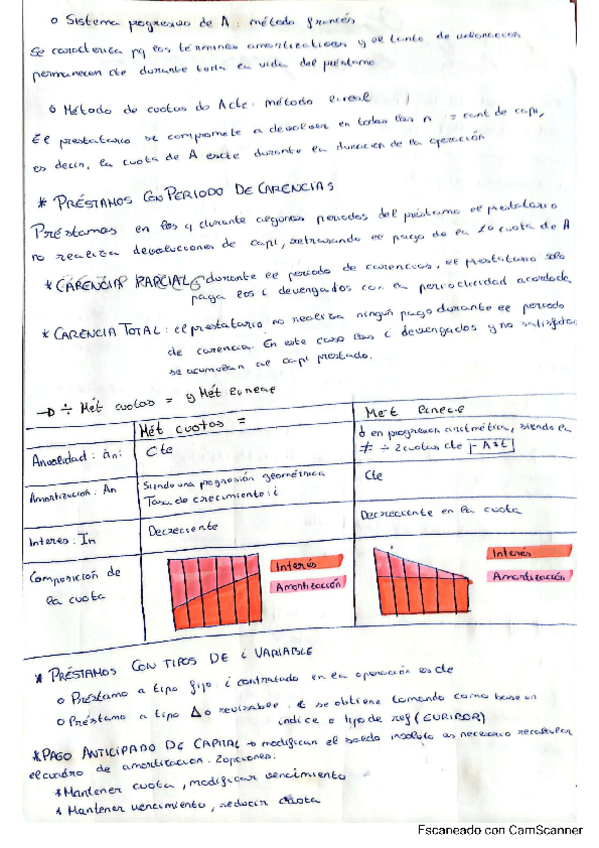 o Sistema progresivo de A: método francés
Se caracteriza pq los términos amortizativos y el tanto de valoración
permanecen cte durante toda la vida del préstamo
o Método de cuotas de A cte: método lineal
El prestatario se compromete a devolver en todos los n = cant de capi,
es decir, la cuota de A es cte durante la duración de la operación
* PRÉSTAMOS CON PERIODO DE CARENCIAS
Préstamos en los q durante algunos periodos del préstamo el prestatario
no realiza devoluciones de capi, retrasando el pago de la 1º cuota de A
* CARENCIA PARCIAL: durante el periodo de carencias, el prestatario solo
paga los i devengados con la periodicidad acordada
* CARENCIA TOTAL: el prestatario no realiza ningún pago durante el periodo
de carencia. En este caso los i devengados y no satisfechos
se acumulan al capi prestado.
÷ Mét cuotas = y Mét lineal
Mét cuotas =
Met lineal
Anualidad: an:
Cte
en progresión aritmética, siendo la
≠ ÷ 2 cuotas cte
Amortización: An
Siendo una progresión geométrica
Tasa de crecimiento: i
Cte
Interes: In
Decreciente
Decreciente en la cuota
Composición de
la cuota
Interés
Amortización
Interés
Amortización
* PRÉSTAMOS CON TIPOS DE i VARIABLE
o Préstamo a tipo fijo: i contratado en la operación es cte
o Préstamo a tipo Δ o revisable: se obtiene tomando como base un
índice o tipo de ref (EURIBOR)
* PAGO ANTICIPADO DE CAPITAL → modifican el saldo insoluto es necesario recalcular
el cuadro de amortización. 2 opciones:
* Mantener cuota, modificar vencimiento
* Mantener vencimiento, reducir cuota
Escaneado con CamScanner